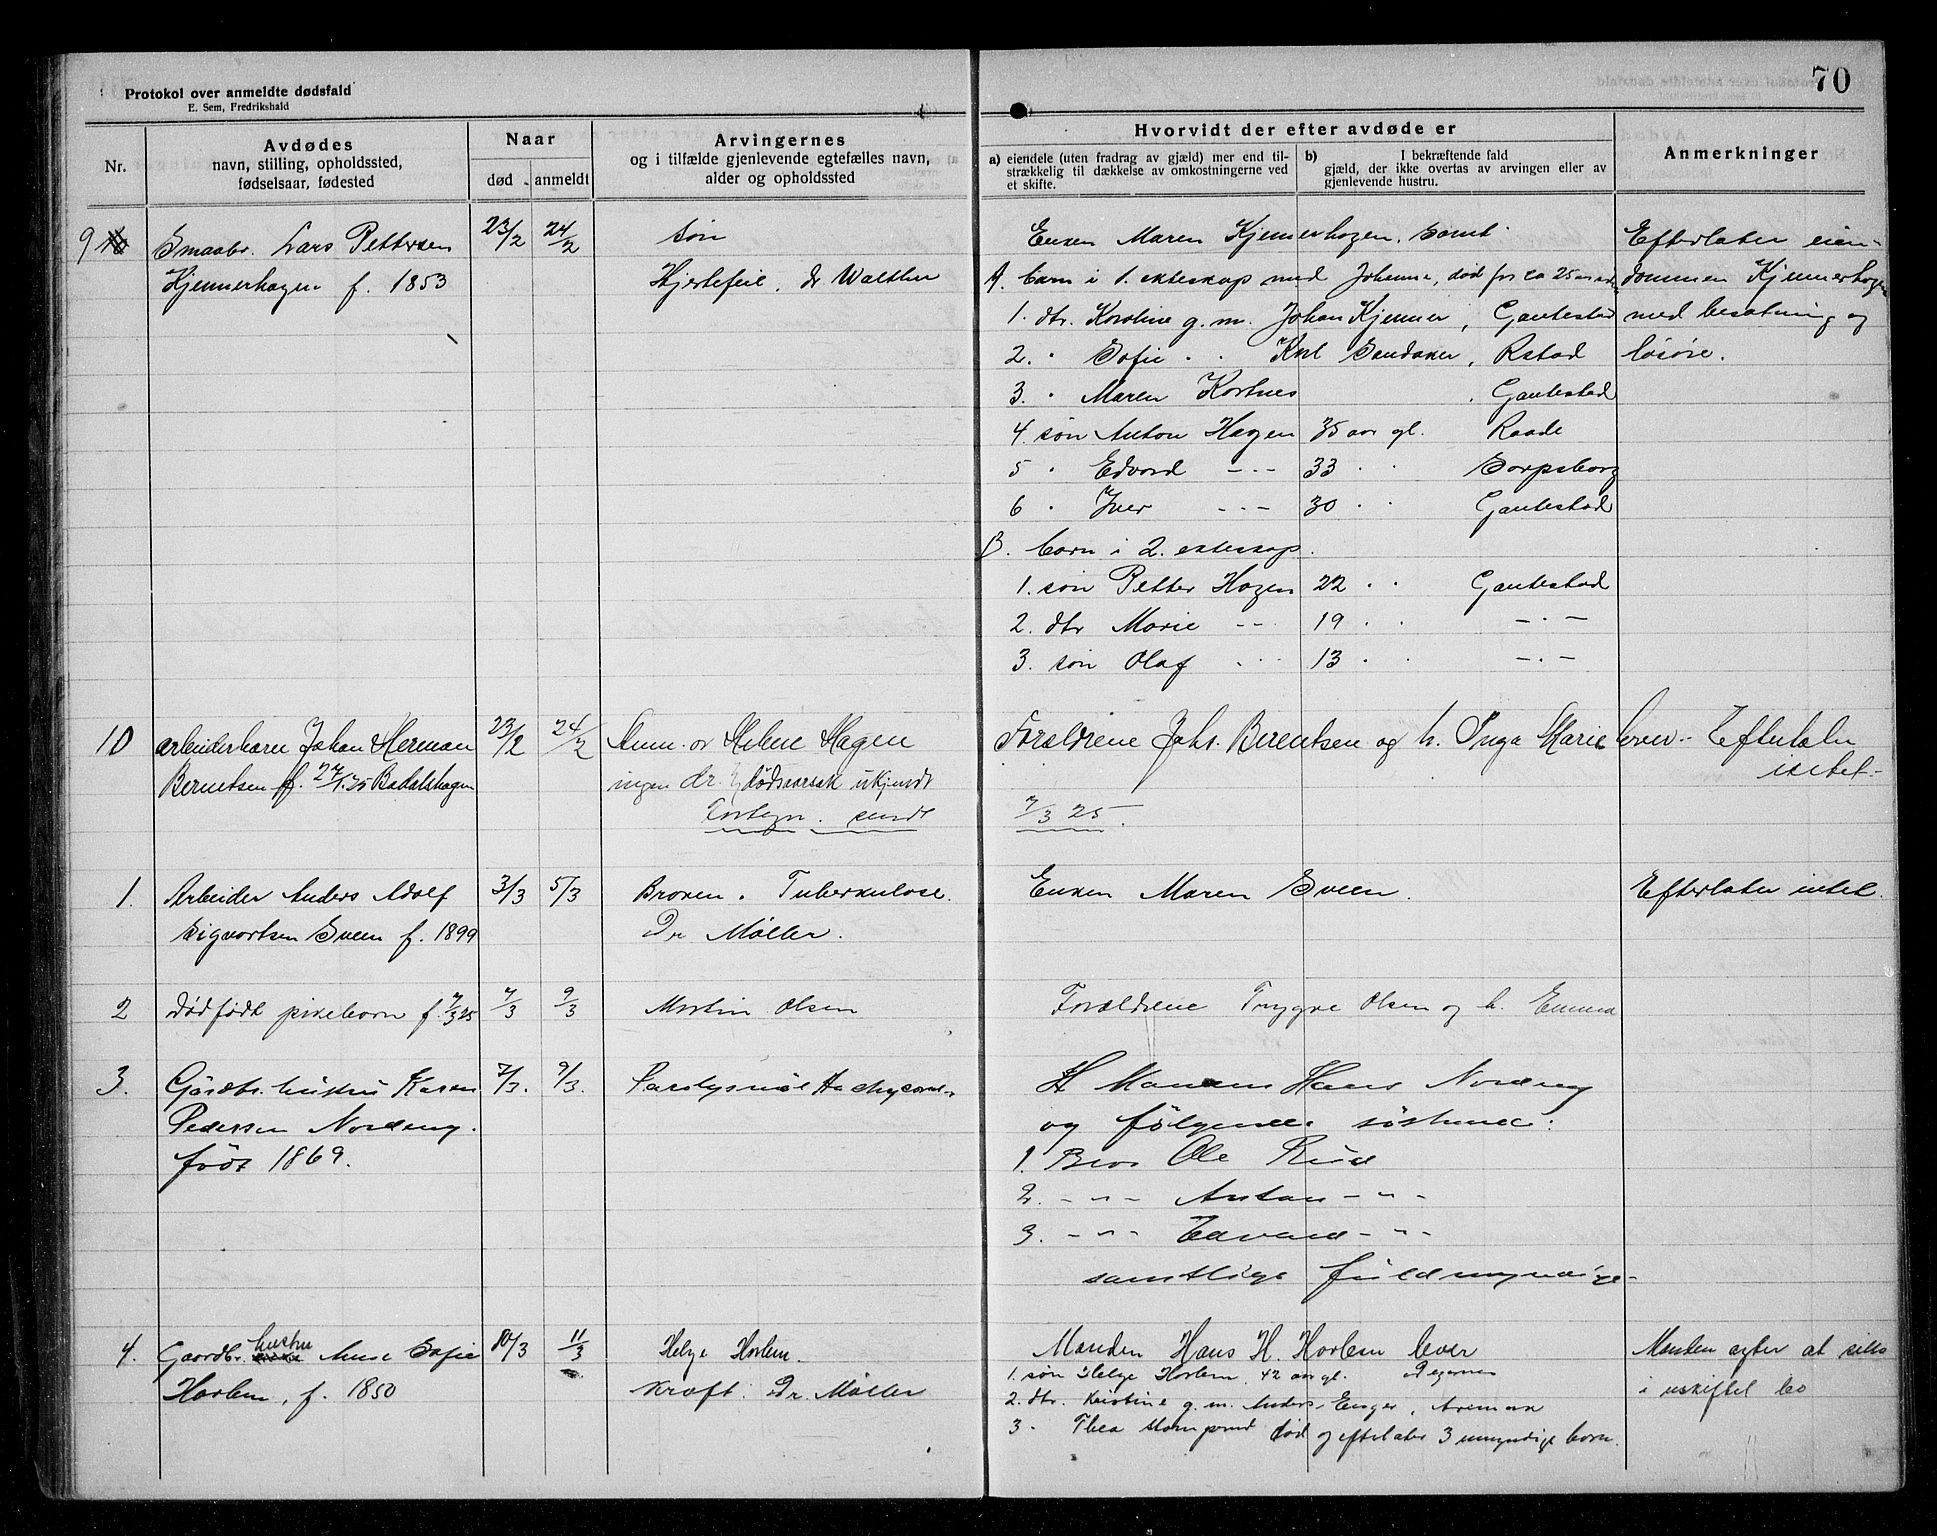 70
Protokol over anmeldte dødsfald
E. Sem, Fredrikshald
Nr.
Avdødes
navn, stilling, opholdssted,
fødselsaar, fødested
Naar
død
anmeldt
Arvingernes
og i tilfælde gjenlevende egtefælles navn,
alder og opholdssted
Hvorvidt der efter avdøde er
a) eiendele (uten fradrag av gjæld) mer end til-
strækkelig til dækkelse av omkostningerne ved
et skifte.
b) I bekræftende fald
gjæld, der ikke overtas av arvingen eller av
gjenlevende hustru.
Anmerkninger
9 Smaabr. Lars Pettersen 23/2 24/2 søn
Kjennerhagen f. 1853 Hjertefeil, dr Walther
Enken Maren Kjennerhagen, samt
A. barn i 1. ekteskap med Johanne, død for ca 25 aar siden
1. dtr. Karoline g. m. Johan Kjenner, Gautestad
2. " Sofie " " Karl Sandaker, Rstad
3. " Maren Kortnes, Gautestad
4. søn Anton Hagen 35 aar gl. Raade
5 " Edvard - " - 33 " " Sarpsborg
6 " Iver - " - 30 " " Gautestad
B. barn i 2. ekteskap.
1. søn Petter Hagen 22 " " Gautestad
2. dtr Marie - " - 19 " " - " -
3. søn Olaf " " 13 " " - " -
Efterlater eien-
dommen Kjennerhagen
med besætning og
løsøre.
10 Arbeiderbarn Johan Herman 23/2 24/2 Anm. av Helene Hagen
Berntsen f. 27/1.25 Badalshagen ingen dr. dødsaarsak ukjendt
sendt
Forældrene Johs. Berentsen og h. Inga Marie lever. - Efterlater
intet -
7/3 25.
1. Arbeider Anders Adolf 3/3 5/3 Broren. Tuberkulose.
Sigvartsen Sveen f. 1899 Dr Møller.
Enken Maren Sveen. Efterlater intet.
2 Dødfødt pikebarn f. 7/3 25 7/3 9/3 Martin Olsen
Forældrene Trygve Olsen og h. Emma
3. Gårdbr. hustru Karen 7/3. 9/3.
Pedersen Nordeng.
født 1869.
Manden Hans Nordeng
og følgende søskende:
1. Bror Ole Rud
2. - " - Anton - " -
3. - " - Edvard - " -
samtlige fuldmyndige -
4. Gaardbr. hustru Anne Sofie 10/3 11/3 Helge Horlem.
Horlem, f. 1850 Kræft. Dr. Møller
Manden Hans H. Horlem lever
1. søn Helge Horlem, 42 aar gl. Degernes
2. dtr. Kristine g. m. Anders Enger, Aremark
3 " Thea død og efterlater 3 umyndige barn.
Manden agter at sitte
i uskiftet bo